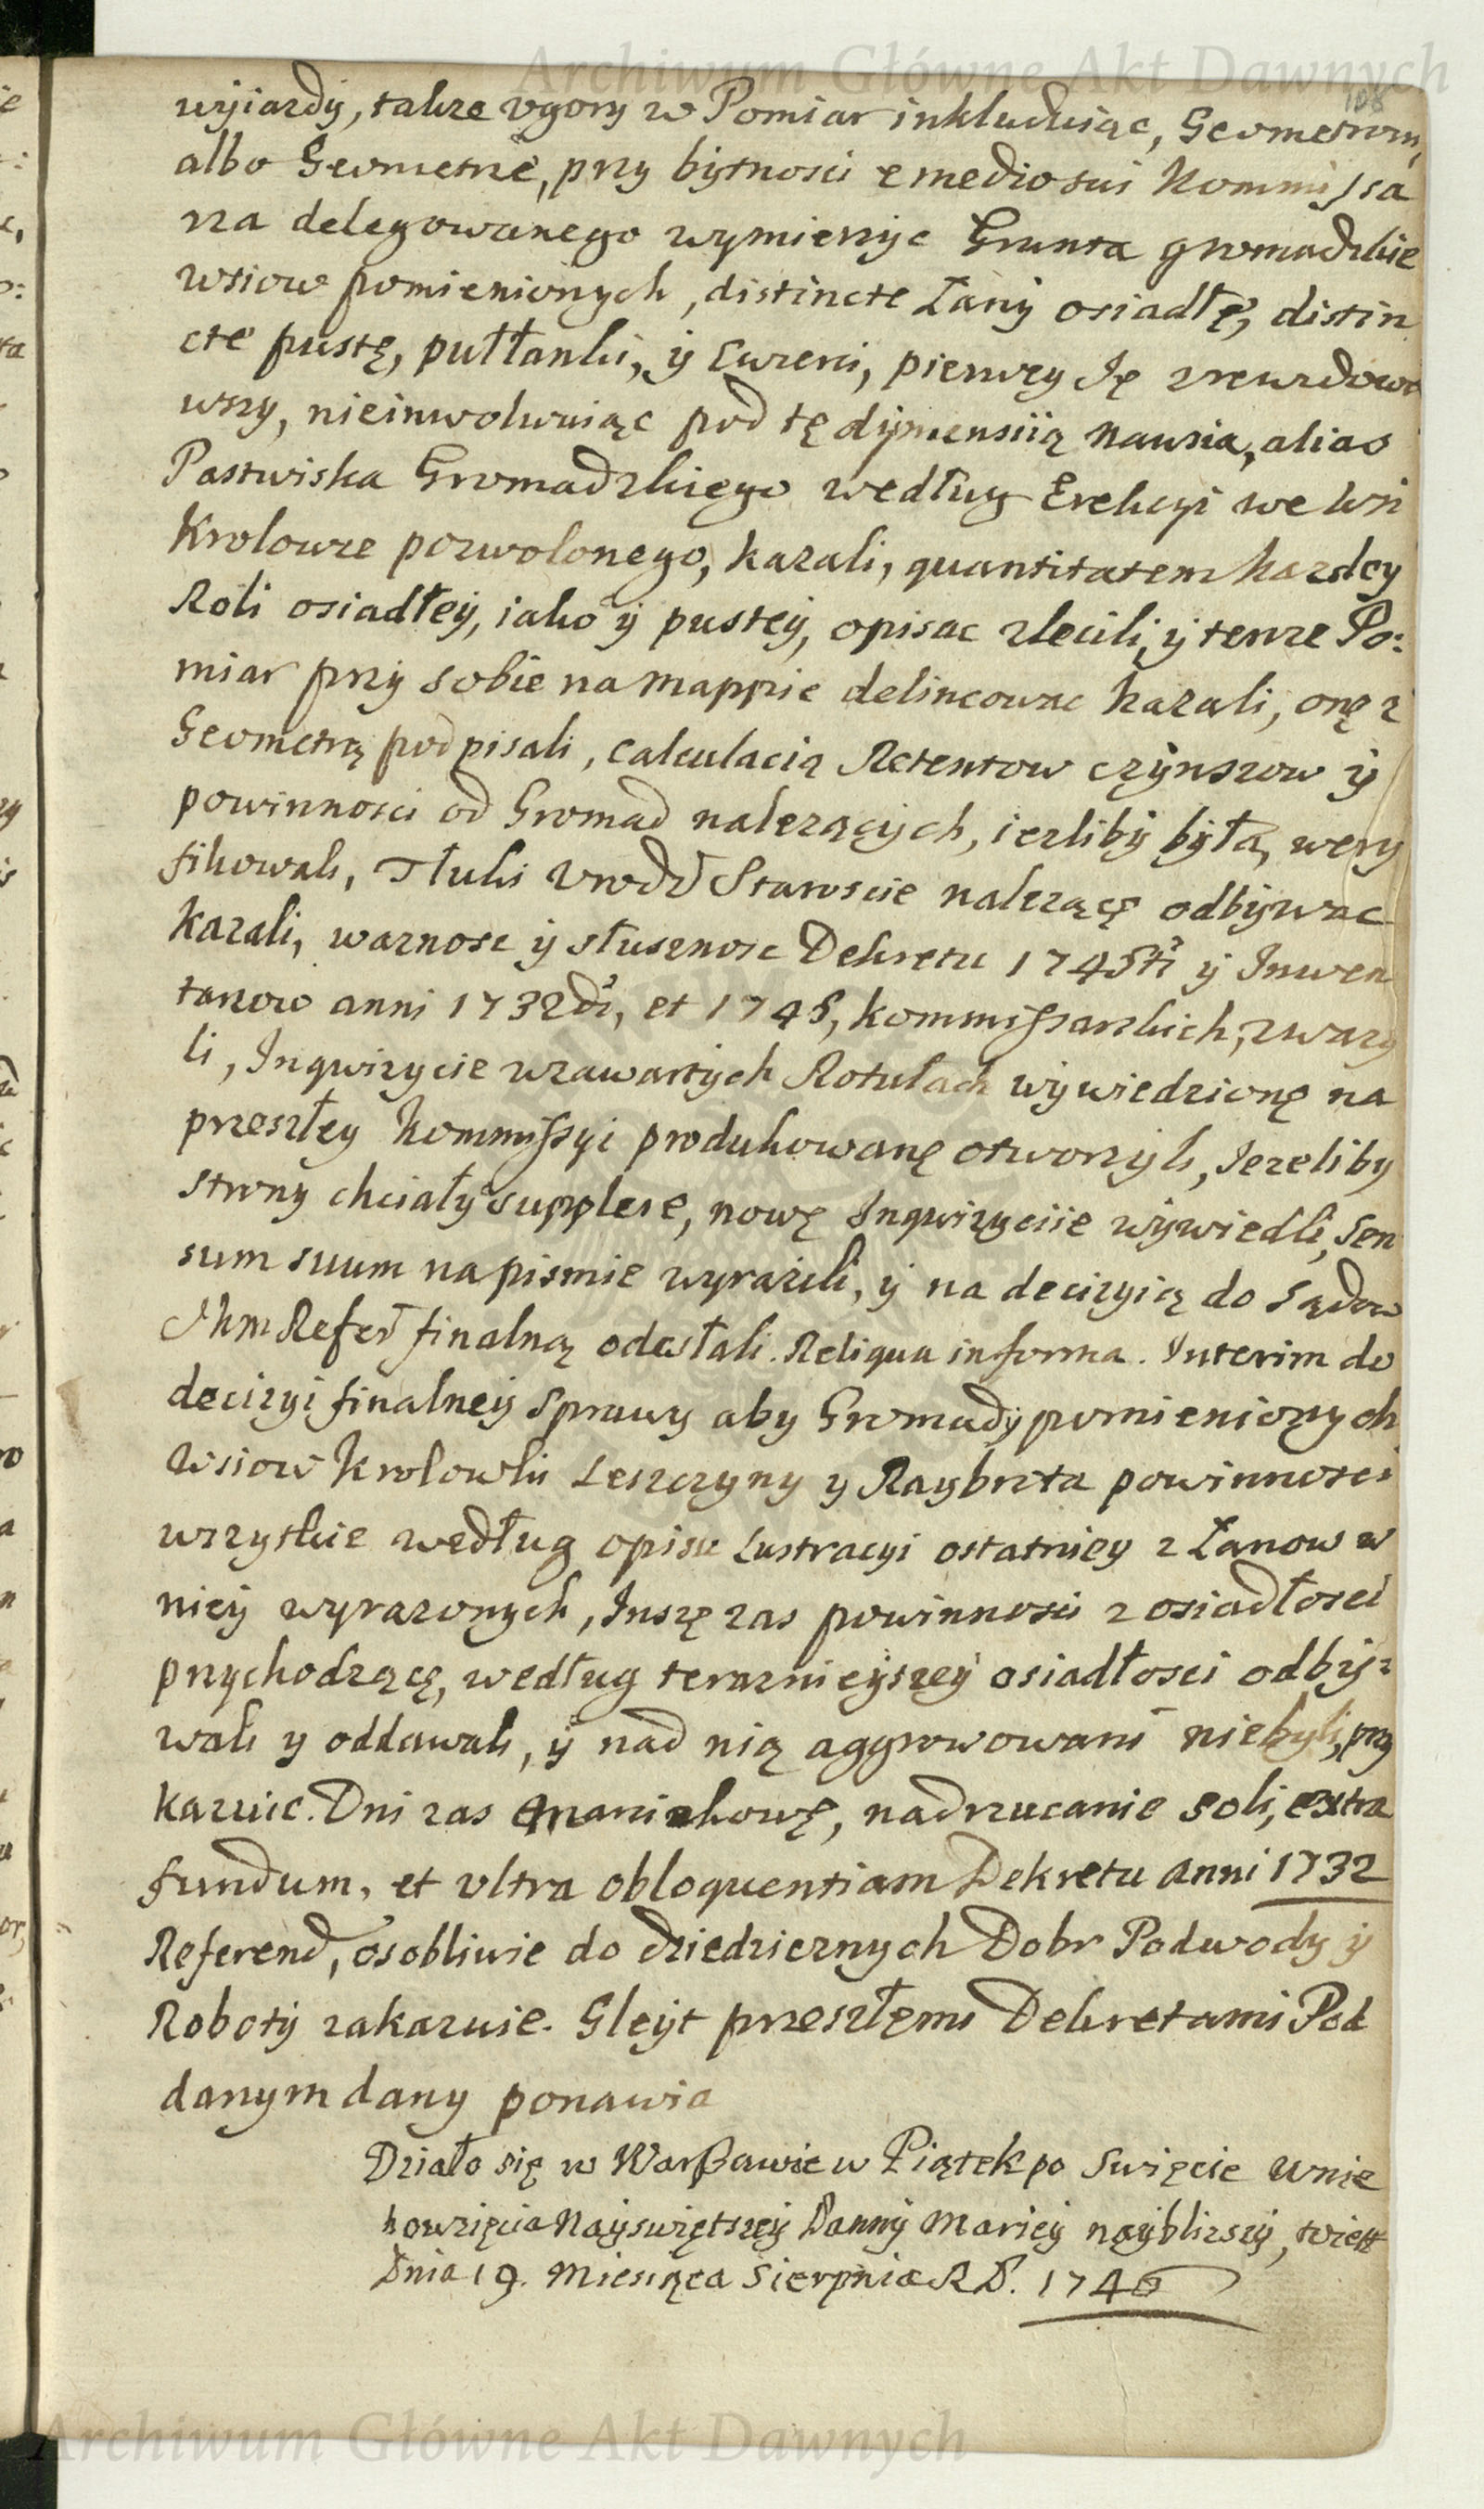 Archiwum Główne Akt Dawnych
108
wyiazdy, takze vgory w Pomiar inkluduiąc, Geometrom,
albo Geometrze, przy bytnosci e medio sui Kommissa
rza delegowanego wymierzyc Grunta gromadzkie
wsiow pomienionych, distincte Łany osiadłę, distin
cte pustę, pułłanki, y Cwierci, pierwey Ię zrewidowa
wszy, nieinwolwuiąc pod tę dymensiią Nawsia, alias
Pastwiska Gromadzkiego według Erekcyi we wsi
Krolowce pozwolonego, kazali, quantitatem kazdey
Roli osiadłey, iako y pustey, opisac zlecili, y tenze Po:
miar przy sobie na mappie delineowac kazali, onę z
Geometrą podpisali, calculacią Retentow czynszow y
powinnosci od Gromad nalezących, iezliby była, wery
fikowali, Tłuki Vrodd Staroscie nalezącę odbywac
kazali, waznosc y słusznosc Dekretu 1745ti y Inwen
tarzow anni 1732di, et 1745, kommissarskich, zwazy
li, Inqwizycie wzawartych Rotułach wywiedzionę na
przeszłey Kommissyi produkowanę otworzyli, Iezeliby
strony chciały supplere, nowę Inqwizyciie wywiedli, Sen
sum suum na pismie wyrazili, y na decizyią do Sądow
Nm Refer finalną odesłali. Reliqua in forma. Interim do
decizyi finalney Sprawy aby Gromady pomienionych
Wsiow Krolowki Leszczyny y Raybrota powinnosci
wszystkie według opisu Lustracyi ostatniey z Łanow w
niey wyrazonych, Inszę zas powinnosci z osiadłosci
przychodzącę, według teraznieyszey osiadłosci odby:
wali y oddawali, y nad nią aggrowowani niebyli, przy
kazuie. Dni zas , nadrzucanie soli, extra
fundum, et vltra obloquentiam Dekretu anni 1732
Referend, osobliwie do dziedzicznych Dobr Podwody y
Roboty zakazuie. Gleyt przeszłęmi Dekretami Pod
danym dany ponawia
Działo się w Warszawie w Piątek po Swięcie Wnie
bowzięcia Nayswiętszey Panny Mariey nayblizszy, to iest
Dnia 19. Miesiąca Sierpnia R P. 1746
Archiwum Główne Akt Dawnych